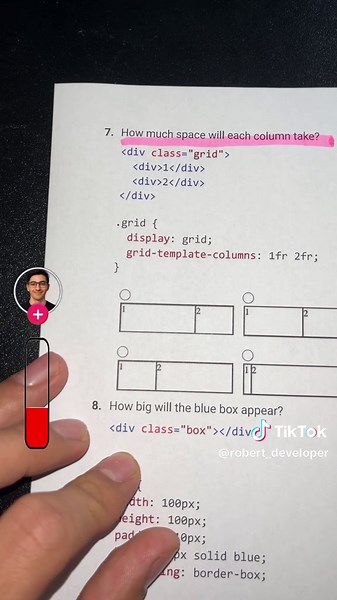 7. How much space will each column take?
<div class="grid">
<div>1</div>
<div>2</div>
</div>
.grid {
display: grid;
grid-template-columns: 1fr 2fr;
}
1 2
1 2
1 2
1 2
8. How big will the blue box appear?
<div class="box"></div
TikTok
@robert_developer
100px;
100px;
solid blue;
border-box;